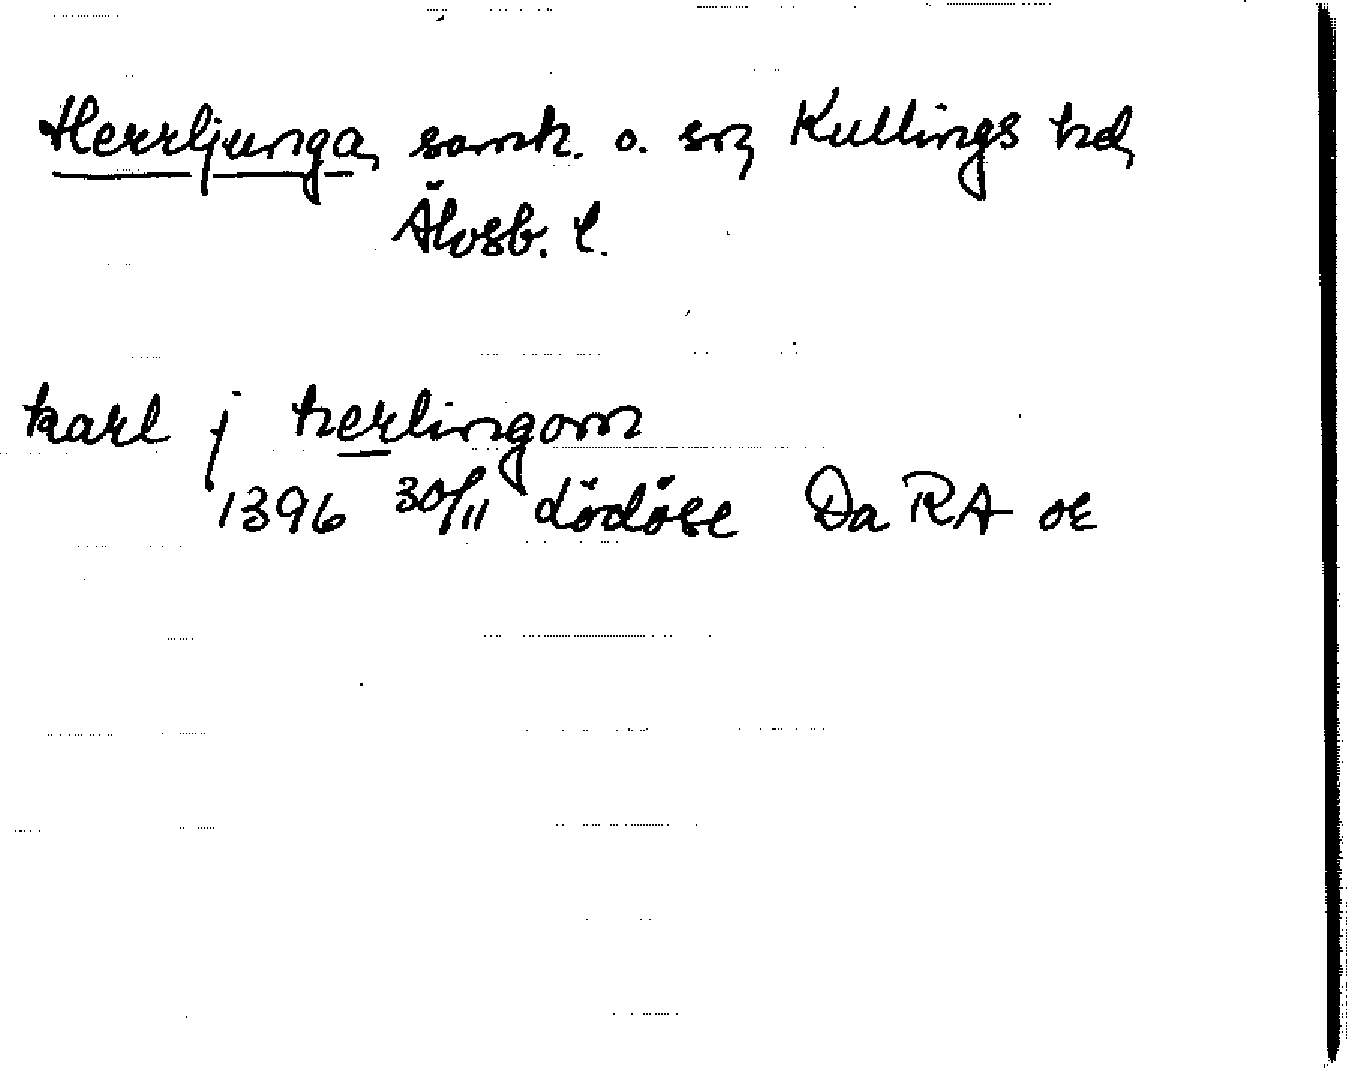 Herrljunga, samh. o. sn, Kullings hd,
Älvsb. l.
karl j herlingom
1396 30/11 dödöse Da RA or